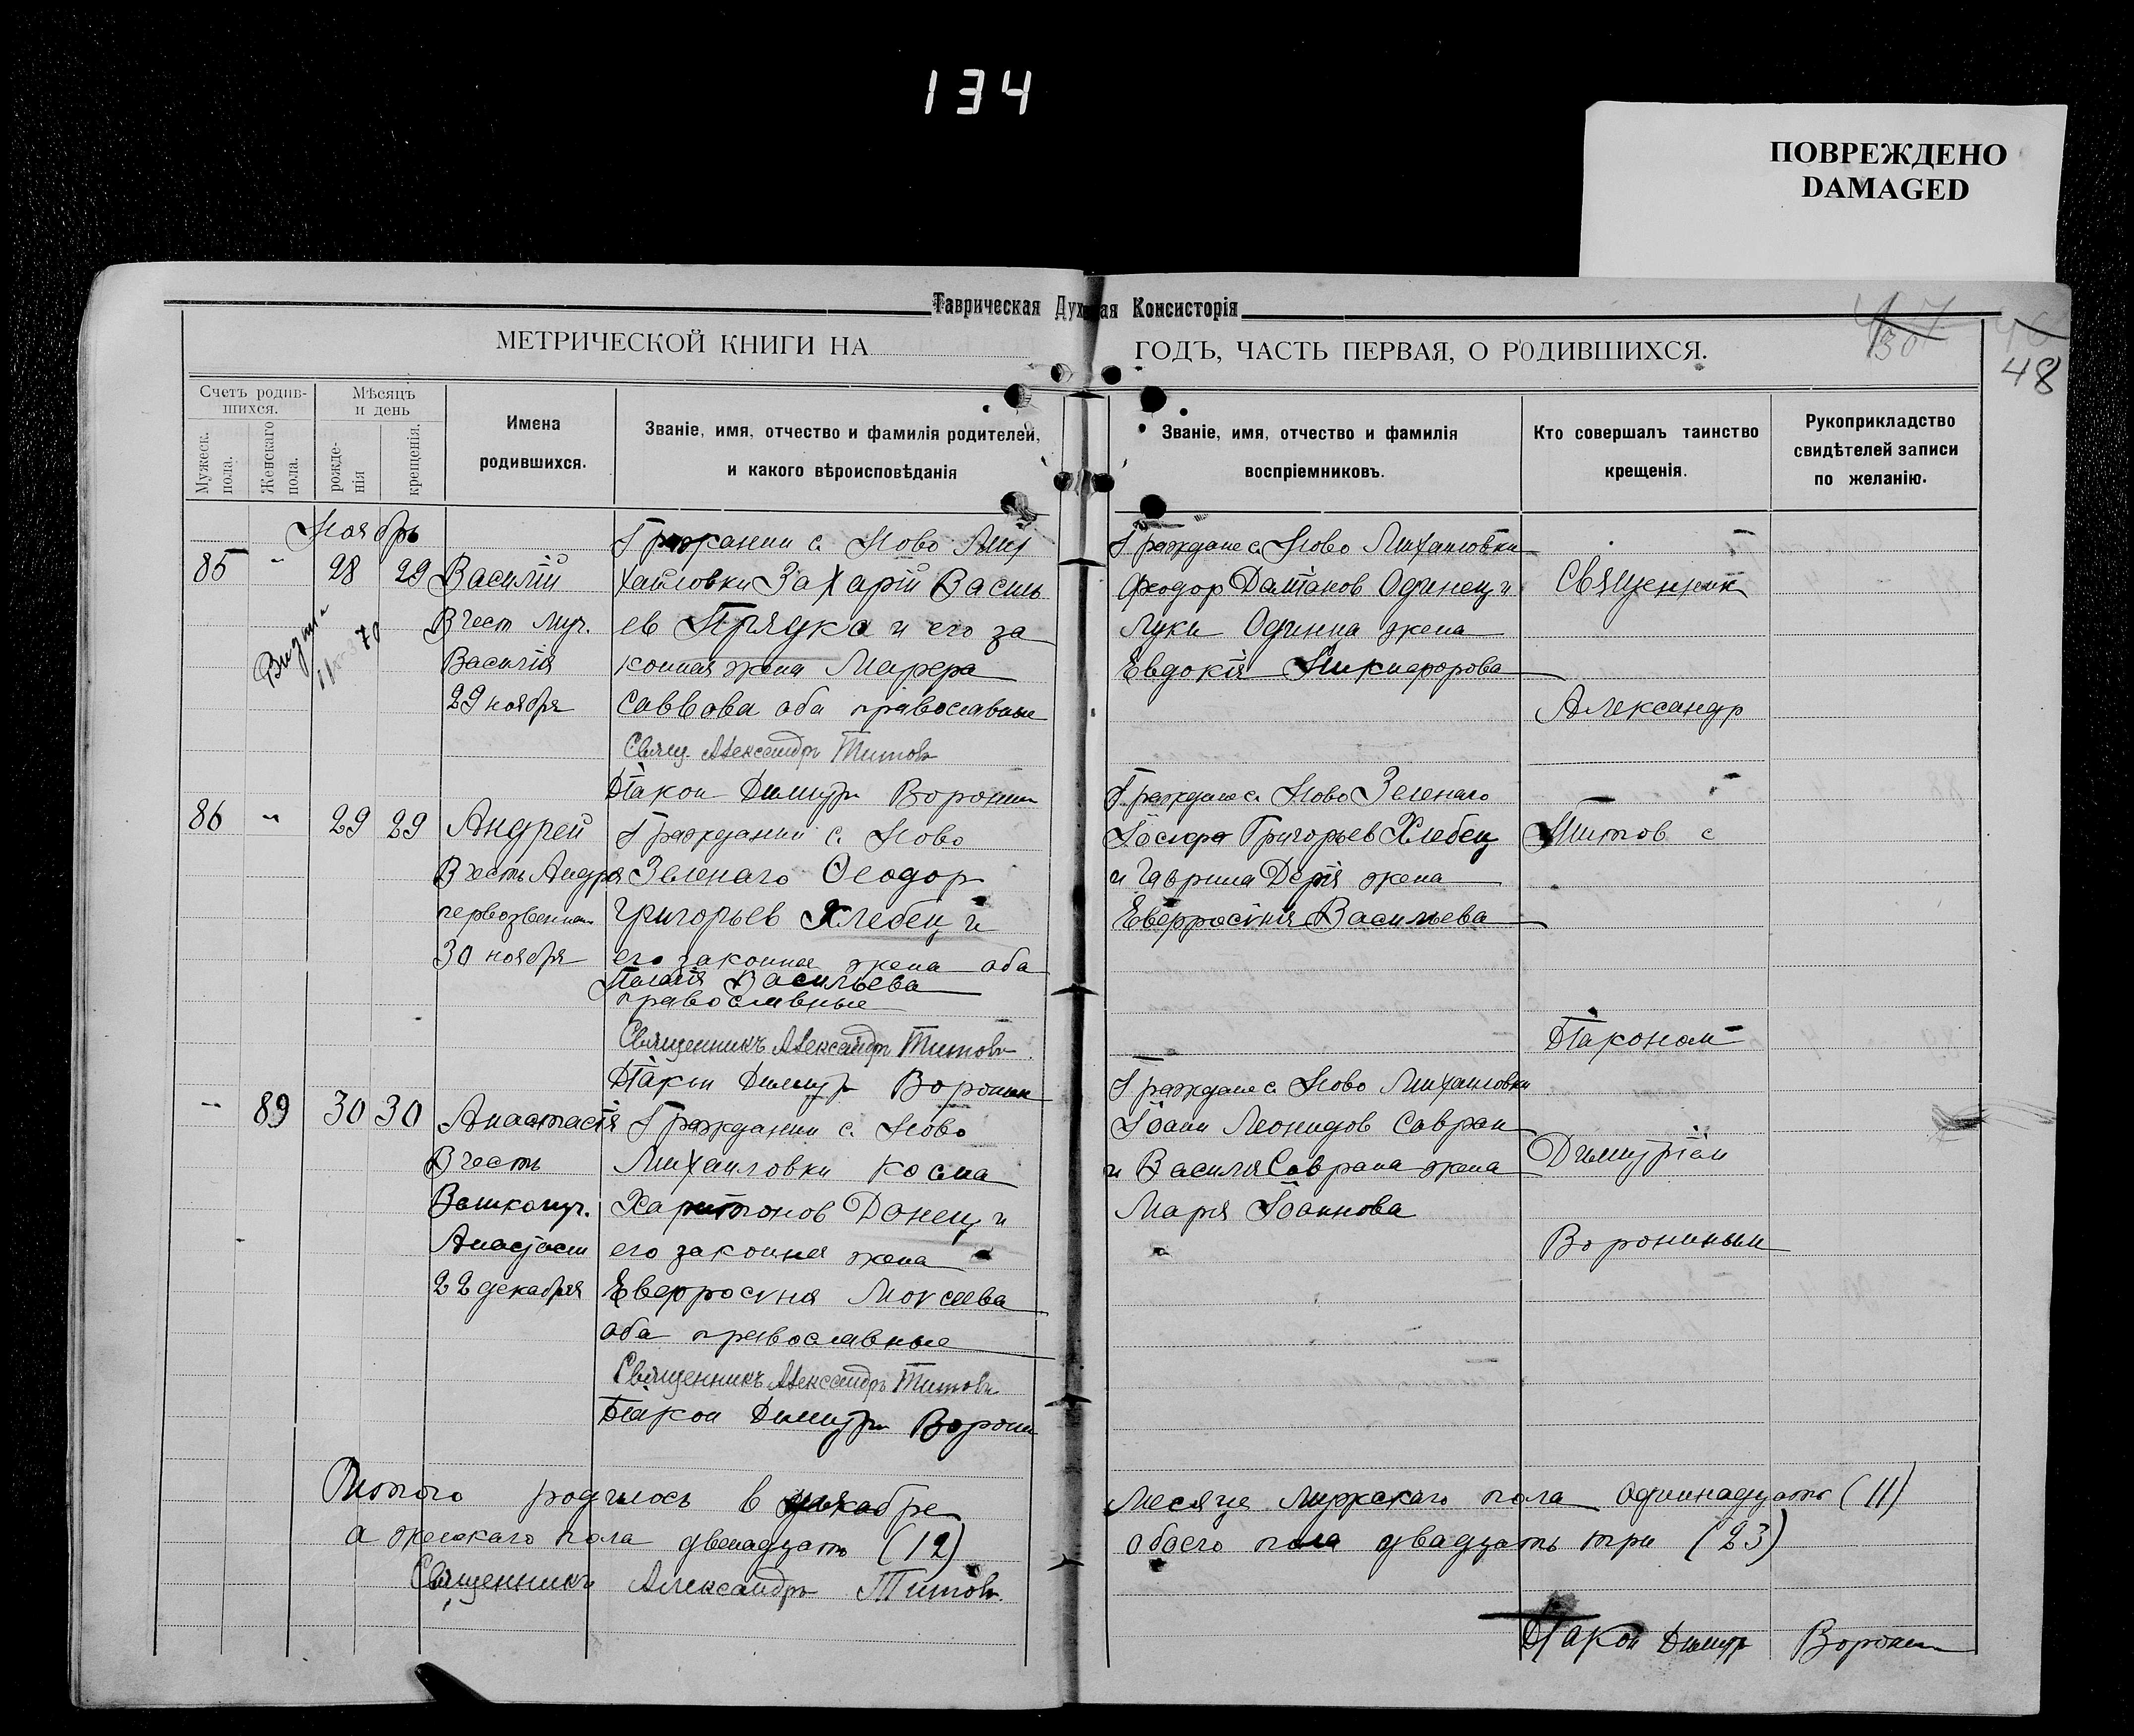 134
ПОВРЕЖДЕНО
DAMAGED
Таврическая Духовная Консисторія
МЕТРИЧЕСКОЙ КНИГИ НА
ГОДЪ, ЧАСТЬ ПЕРВАЯ, О РОДИВШИХСЯ.
48
Счетъ родив-
шихся.
Мѣсяцъ
и день
Мужеск.
пола.
Женскаго
пола.
рожде-
нія
крещенія.
Имена
родившихся.
Званіе, имя, отчество и фамилія родителей,
и какого вѣроисповѣданія
Званіе, имя, отчество и фамилія
воспріемниковъ.
Кто совершалъ таинство
крещенія.
Рукоприкладство
свидѣтелей записи
по желанію.
Ноябрь
85 " 28 29
Василій
В чест муч.
Василія
29 ноября
Гражданин с. Ново Ми
хайловки Захарій Василь
ев Прядка и его за
конная жена
Саввова оба православные
Свящ. Александръ Титовъ
Діакон Димитр Воронин
Граждане с. Ново Михайловки
Феодор Одинец и
Луки Одинца жена
Евдокія Никифорова
Священник
Александр
Титов с
Діаконом
Димитріем
Ворониным
86 " 29 29
Андрей
В честь Андрея
первозванн
30 ноября
Гражданин с. Ново
Зеленаго Феодор
Григорьев Хлебец и
его законная жена оба
Васильева
православные
Священникъ Александръ Титовъ
Діакон Димитр Воронин
Граждане с. Ново Зеленаго
Іосиф Григорьев Хлебец
и Гаврила жена
Евфросинія Васильева
" 89 30 30
Анастасія
В честь
Великомуч.
Анастасіи
22 декабря
Гражданин с. Ново
Михайловки Косма
Харитонов Донец и
его законная жена
Евфросиня Моисеева
оба православные
Священникъ Александръ Титовъ
Діакон Димитр Воронин
Граждане с. Ново Михайловки
Іоанн Леонидов Савран
и Василія Саврана жена
Марія Іоаннова
Итого родилось в месяце мужскаго пола одиннадцать (11)
а женскаго пола двенадцать (12) обоего пола двадцать три (23)
Священникъ Александръ Титовъ.
Діакон Димитр Воронин